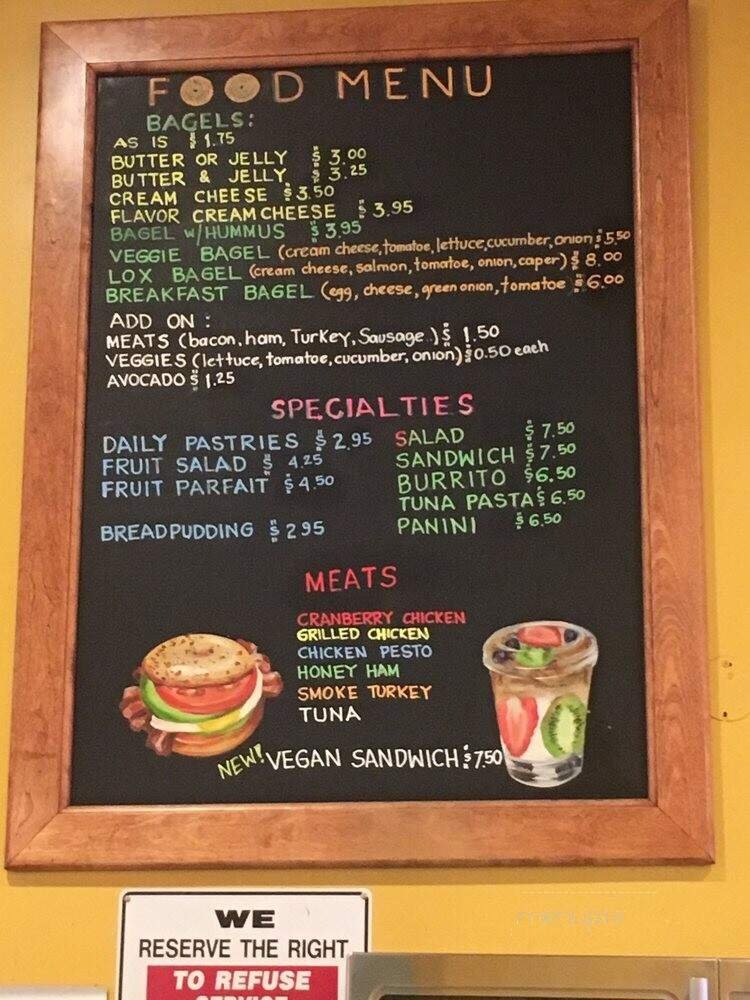 FOOD MENU
BAGELS:
AS IS $ 1.75
BUTTER OR JELLY $ 3.00
BUTTER & JELLY $ 3.25
CREAM CHEESE $3.50
FLAVOR CREAM CHEESE $ 3.95
BAGEL w/HUMMUS $ 3.95
VEGGIE BAGEL (cream cheese, tomatoe, lettuce, cucumber, onion $ 5.50
LOX BAGEL (cream cheese, salmon, tomatoe, onion, caper) $ 8.00
BREAKFAST BAGEL (egg, cheese, green onion, tomatoe $ 6.00
ADD ON :
MEATS (bacon, ham, Turkey, Sausage.) $ 1.50
VEGGIES (lettuce, tomatoe, cucumber, onion) $0.50 each
AVOCADO $ 1.25
SPECIALTIES
DAILY PASTRIES $ 2.95
FRUIT SALAD $ 4.25
FRUIT PARFAIT $ 4.50
BREADPUDDING $ 2.95
SALAD $ 7.50
SANDWICH $ 7.50
BURRITO $6.50
TUNA PASTA $ 6.50
PANINI $ 6.50
MEATS
CRANBERRY CHICKEN
GRILLED CHICKEN
CHICKEN PESTO
HONEY HAM
SMOKE TURKEY
TUNA
NEW! VEGAN SANDWICH $ 7.50
WE
RESERVE THE RIGHT
TO REFUSE
SERVICE